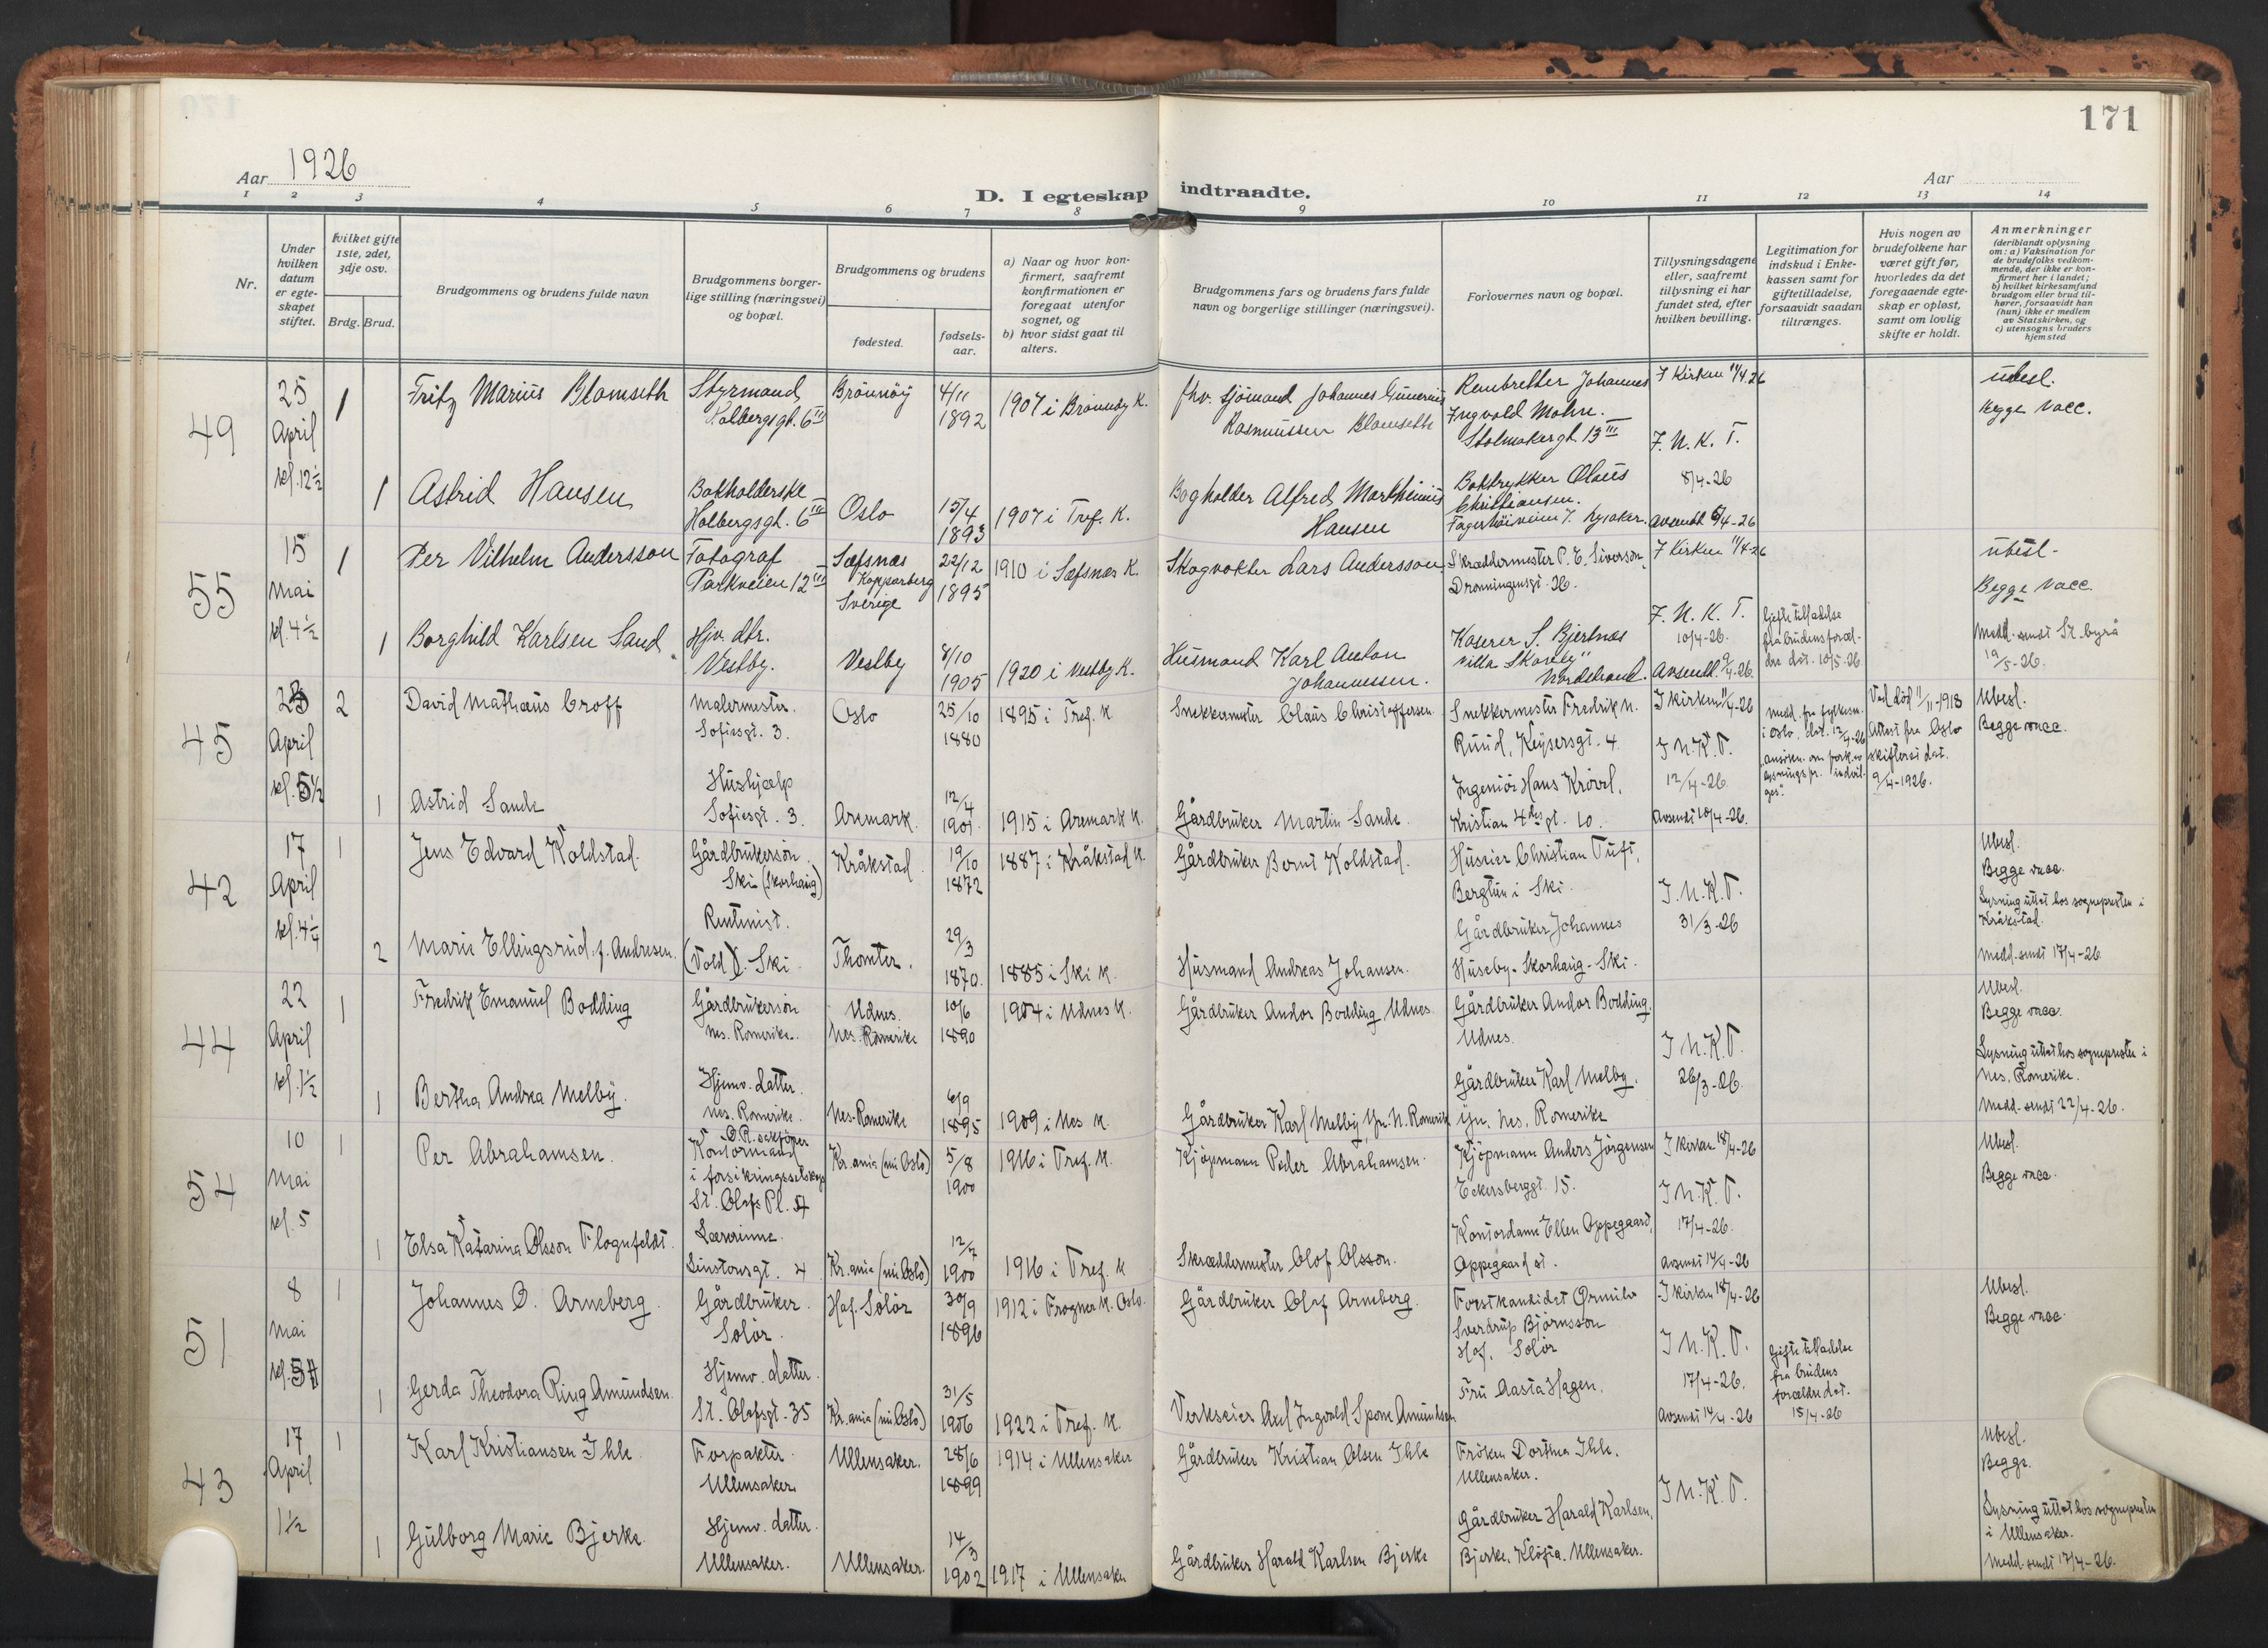 171
Aar 1926
D. I egteskap indtraadte.
Aar
1 2 3 4 5 6 7 8 9 10 11 12 13 14
Nr.
Under hvilken datum er egte-skapet stiftet.
hvilket gifte 1ste, 2det, 3dje osv.
Brdg. Brud.
Brudgommens og brudens fulde navn
Brudgommens borger-lige stilling (næringsvei) og bopæl.
Brudgommens og brudens
fødested.
fødsels-aar.
a) Naar og hvor kon-firmert, saafremt konfirmationen er foregaat utenfor sognet, og
b) hvor sidst gaat til alters.
Brudgommens fars og brudens fars fulde navn og borgerlige stillinger (næringsvei).
Forlovernes navn og bopæl.
Tillysningsdagene eller, saafremt tillysning ei har fundet sted, efter hvilken bevilling.
Legitimation for indskud i Enke-kassen samt for giftetilladelse, forsaavidt saadan tiltrænges.
Hvis nogen av brudefolkene har været gift før, hvorledes da det foregaaende egte-skap er opløst, samt om lovlig skifte er holdt.
Anmerkninger (deriblandt oplysning om: a) Vaksination for de brudefolks vedkom-mende, der ikke er kon-firmert her i landet; b) hvilket kirkesamfund brudgom eller brud til-hører, forsaavidt han (hun) ikke er medlem av Statskirken, og c) utensogns bruders hjemsted
49
25 April kl. 12½
1 Fritz Marius Blomseth
Styrmand Holbergsgt. 6 III
Brönnöy
4/11 1892
1907 i Brönnöy K.
fhv. sjömand Johannes Gunerius Rasmussen Blomseth
Johannes Ingvold Mohn. Stolmakergt. 13 III
I Kirken 11/4 26
F. N. K. T.
ubesl.
Begge vacc.
1 Astrid Hansen
Bokholderske Holbergsgt. 6 III
Oslo
15/4 1893
1907 i Tref. K.
Bogholder Alfred Markhinius Hansen
Boktrykker Olaus Christiansen. Fagerhöiveien 7. Lysaker.
8/4-26
Avsendt 6/4-26
55
15 Mai kl. 4½
1 Per Vilhelm Andersson
Fotograf Parkveien 12 III
Sæfsnæs Kopparberg Sverige
22/12 1895
1910 i Sæfsnæs K.
Skogvokter Lars Andersson
Skræddermester P. E. Siverson, Dronningensgt. 26.
I Kirken 11/4-26
F. N. K. T.
ubesl.
Begge vacc.
1 Borghild Karlsen Sand
Hjv. dtr. Vestby.
Vestby
8/10 1905
1920 i Vestby K.
Husmand Karl Anton Johannessen.
Kaserer S. Bjertnæs villa "Skovly" Nordstrand.
10/4-26.
Avsendt 9/4-26.
Giftetilladelse fra brudens foræl-dre dat. 10/5-26.
Medd. sendt St. byrå 19/5-26.
45
23 April kl. 5½
2 David Mathæus Croff
Malermester. Sofiesgt. 3.
Oslo
25/10 1880
1895 i Tref. K.
Snekkermester Olaus Christoffersen.
Snekkermester Fredrik N. Ruud, Keysersgt. 4
I kirken 11/4-26
I N. K. T.
Medd. fra fylkesm. i Oslo, dat. 12/4-26
Ved död 11/11-1918
Attest fra Oslo skifteret dat. 9/4-1926.
Ubesl.
Begge vacc.
1 Astrid Sande
Hushjælp Sofiesgt. 3.
Aremark.
12/4 1901.
1915 i Aremark K.
Gårdbruker Martin Sande.
Ingeniör Hans Krövel, Kristian 4des gt. 10.
12/4-26.
Avsendt 10/4-26.
42
17 April kl. 4¼
1 Jens Edvard Koldstad.
Gårdbrukersön. Ski (Skorhaug)
Kråkstad
19/10 1872
1887 i Kråkstad K.
Gårdbruker Bernt Koldstad.
Huseier Christian Tuft, Bergtun i Ski.
I. N. K. T.
31/3-26
Ubesl.
Begge vacc.
Lysning uttat hos sogneprsten i Kråkstad.
2 Marie Ellingsrud f. Andresen.
Rentenist. (Vold). Ski.
Thomter.
29/3 1870.
1885 i Ski K.
Husmand Andreas Johansen.
Gårdbruker Johannes Huseby. Skorhaug - Ski.
Medd. sendt 17/4-26
44
22 April kl. 1½
1 Fredrik Emanuel Bodding
Gårdbrukersön Nes. Romerike.
Udnes. Nes. Romerike
10/6 1890
1904 i Udnes K.
Gårdbruker Andor Bodding Udnes.
Gårdbruker Andor Bodding. Udnes.
I N. K. T.
26/3-26.
Ubesl.
Begge vacc.
Lysning uttat hos sogneprsten i Nes, Romerike.
1 Bertha Andrea Melby.
Hjemv. datter. Nes. Romerike.
Nes. Romerike
6/9 1895
1909 i Nes K.
Gårdbruker Karl Melby, Yn. N. Romerik
Gårdbruker Karl Melby. Yn. Nes. Romerike
Medd. sendt 22/4-26.
54
10 Mai kl. 5
1 Per Abrahamsen.
Kontormand i forsikringsselskap St. Olafs Pl.
Kr.ania (nu Oslo)
5/8 1900
1916 i Tref. K.
Kjöpmann Peder Abrahamsen.
Kjöpmann Anders Jörgensen Eckersberggt. 15.
I kirken 18/4-26
I N. K. T.
Ubesl.
Begge vacc.
1 Elsa Katarina Olsson Flognfeldt.
Lærerinne. Linstowsgt. 4
Kr.ania (nu Oslo)
12/7 1900
1916 i Tref. K
Skræddermester Olof Olsson.
Kontordame Ellen Oppegaard, Oppegaard st.
17/4-26.
Avsendt 14/4-26
51
8 Mai kl. 5
1 Johannes O. Arneberg.
Gårdbruker. Solör.
Hof. Solör
30/9 1896
1912 i Frogner K. Oslo.
Gårdbruker Olaf Arneberg.
Forstkandidat Ørnulv Sverdrup Björnsson Hof. Solör
I kirken 18/4-26
I N. K. T.
Ubesl.
Begge vacc.
1 Gerda Theodora Ring Amundsen.
Hjemv. datter. St. Olafsgt. 35
Kr.ania (nu Oslo)
31/5 1906
1922 i Tref. K.
Verkseier Axel Ingvald Spone Amundsen
Fru Aasta Hagen.
17/4-26.
Avsendt 14/4-26
Giftetilladelse fra brudens forældre dat. 15/4-26
43
17 April 1½
1 Karl Kristiansen Ihle
Forpakter. Ullensaker
Ullensaker.
28/6 1899
1914 i Ullensaker
Gårdbruker Kristian Olsen Ihle
Fröken Dorthea Ihle. Ullensaker.
I N. K. T.
Ubesl.
Begge.
Lysning uttat hos sogneprsten i Ullensaker.
1 Gulborg Marie Bjerke.
Hjemv. datter. Ullensaker.
Ullensaker.
14/3 1902
1917 i Ullensaker
Gårdbruker Harald Karlsen Bjerke
Gårdbruker Harald Karlsen, Bjerke, Klöfta. Ullensaker.
Medd. sendt 17/4-26.